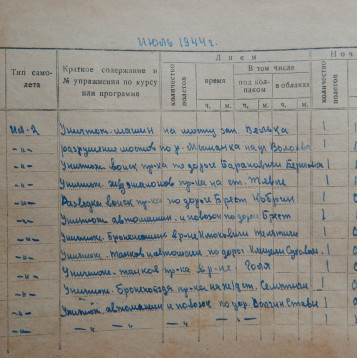 Июль 1944 г.
Днем
Ноч
Тип само-
лета
Краткое содержание и
№ упражнения по курсу
или программе
количество
полетов
время
В том числе
под кол-
паком
в облаках
количество
полетов
ч. м. ч. м. ч. м.
Ил-2 Уничтож. машин на мосту зап. Вилька 1
-"- разрушении мостов по р. Мышанка 1
-"- Уничтож. войск пр-ка по дороге Барановичи 1
-"- Уничтож. эв. эшелонов пр-ка на ст. 1
-"- Разведка войск пр-ка по дороге Брест Кобрин 1
-"- Уничтож. автомашин и повозок по дороге Брест 1
-"- Уничтож. бронемашин в р-не 1
-"- Уничтож. танков и автомашин по дороге Клещели 1
-"- Уничтож. танков пр-ка в р-не 1
-"- Уничтож. бронепоезда пр-ка на ж/д ст. Семятичи 1
-"- Уничтож. автомашин и повозок по дор. 1
-"- -"- -"- -"- 1